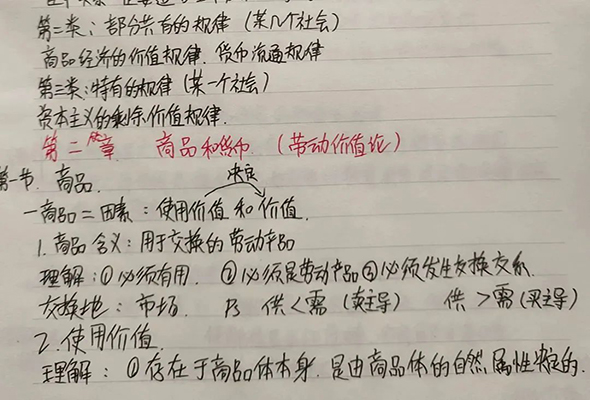 第二类：部分共有的规律（某几个社会）
商品经济的价值规律．货币流通规律
第三类：特有的规律（某一个社会）
资本主义的剩余价值规律．
第二章 商品和货币 （劳动价值论）
第一节．商品．
决定
一商品二因素：使用价值和价值．
1．商品含义：用于交换的劳动产品
理解：①必须有用．②必须是劳动产品③必须发生交换关系．
交换地：市场． Ps 供＜需（卖主导） 供＞需（买主导）
2．使用价值．
理解：①存在于商品体本身．是由商品体的自然属性决定的．